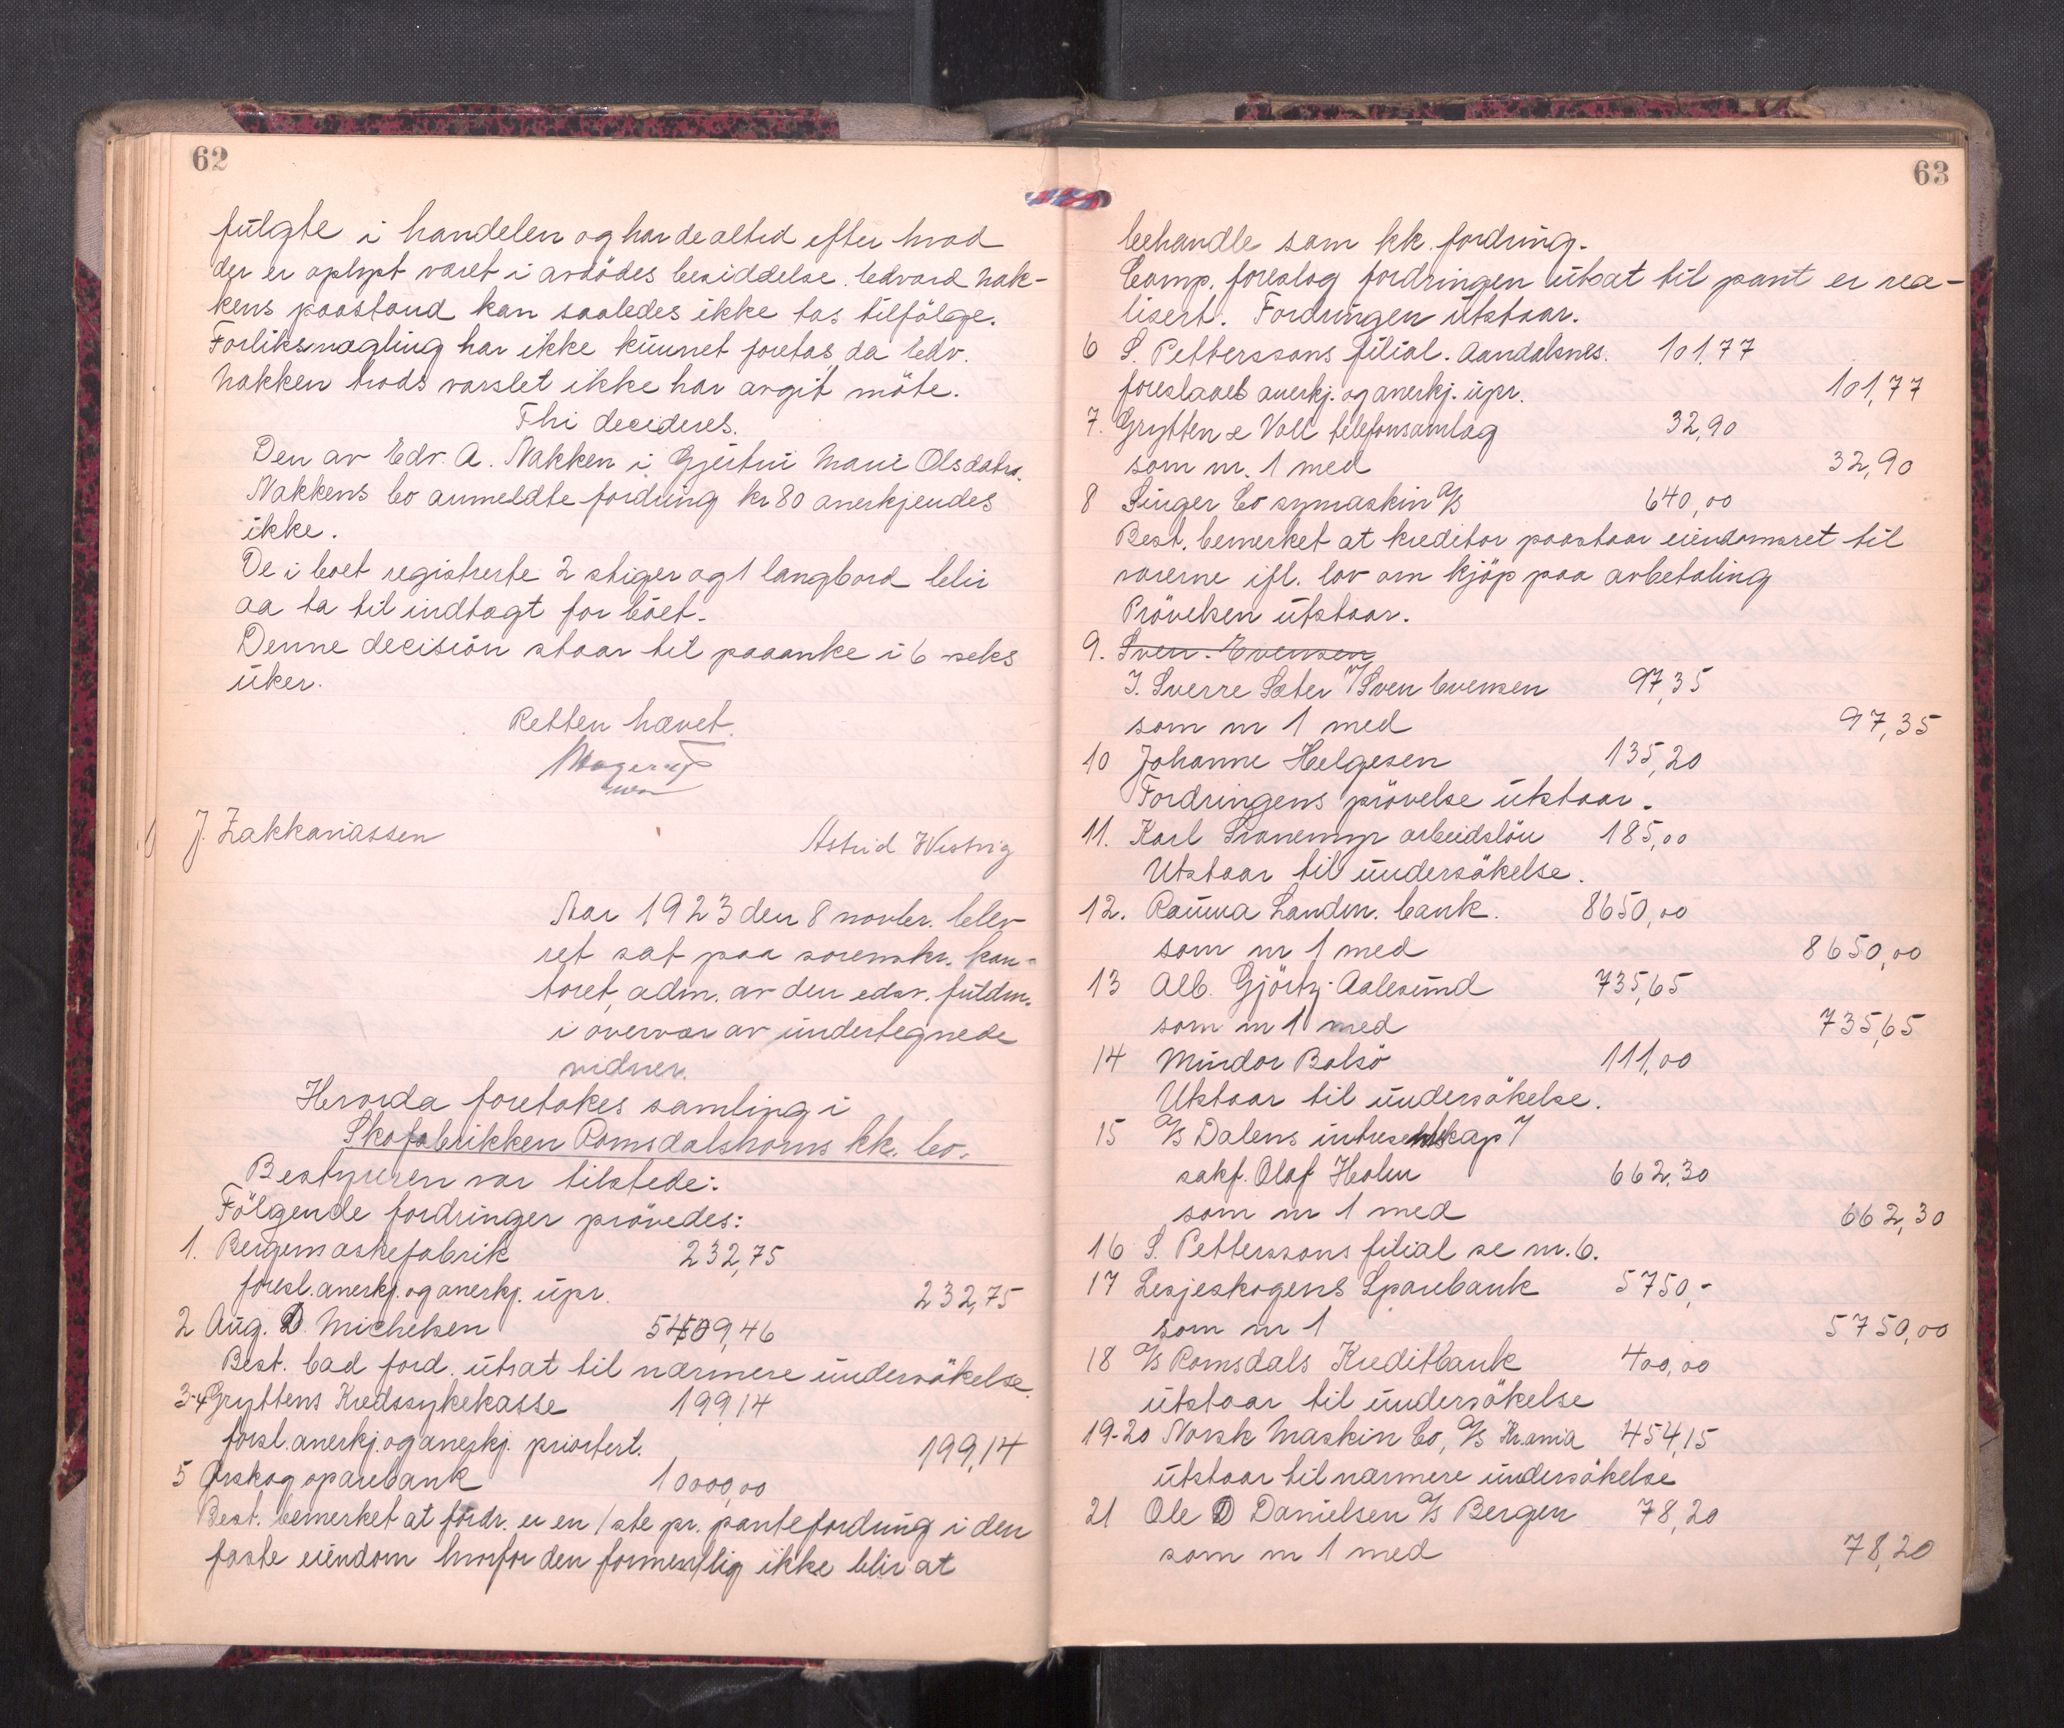 62
fulgte i handelen og har de altid efter hvad
der er oplyst været i avdödes besiddelse. Edvard Nak-
kens paastand kan saaledes ikke tas tilfölge.
Forliksmægling har ikke kunnet foretas, da Edv.
Nakken trods varslet ikke har avgit möte.
Thi decideres.
Den av Edv. A. Nakken i Gjertrui Marie Olsdatra.
Nakkens bo anmeldte fordring kr 80 anerkjendes
ikke.
De i boet registrerte 2 stiger og 1 langbord blir
aa ta til indtægt for boet.
Denne decision staar til paaanke i 6 seks
uker.
Retten hævet.
J. Zakkariassen
Astrid Westvig
Aar 1923 den 8 novbr. blev
ret sat paa sorenskr. kon-
toret, adm. av den edsv. fuldm.
i overvær av undertegnede
vidner.
Hvorda foretokes samling i
Skofabrikken Romsdalshorns kk. bo.
Bestyreren var tilstede.
Fölgende fordringer prövedes:
1. Bergens æskefabrik 232,75
foresl. anerkj. og anerkj. upr. 232,75
2 Aug. D. Michelsen 5409,46
Best. bad ford. utsat til nærmere undersökelse.
3-4 Gryttens Kredssykekasse 199,14
forsl. anerkj. og anerkj. priortert. 199,14
5 Ørskog sparebank 10000,00
Best. bemerket at fordr. er en 1ste pr. pantefordring i den
faste eiendom hvorfor den formentlig ikke blir at
63
behandle som kk. fordring.
Comp. foreslog fordringen utsat til pant er rea-
lisert. Fordringen utstaar.
6 S. Petterssons filial. Aandalsnes. 101,77
foreslaaes anerkj. og anerkj. upr. 101,77
7. Grytten & Voll telefonsamlag 32,90
som nr. 1 med 32,90
8 Singer Co symaskin A/S 640,00
Best. bemerket at kreditor paastaar eiendomsret til
varerne ifl. lov om kjöp paa avbetaling
Prövelsen utstaar.
9. Sven Evensen
J. Sverre Sæter f/ Sven Evensen 97,35
som nr 1 med 97,35
10 Johanne Helgesen 135,20
Fordringens prövelse utstaar.
11. Karl Svanemyr arbeidslön 185,00
Utstaar til undersökelse.
12. Rauma Landm. bank. 8650,00
som nr 1 med 8650,00
13 Alb. Gjörtz Aalesund 735,65
som nr 1 med 735,65
14 Mindor Bolsö 111,00
Utstaar til undersökelse.
15 A/S Dalens intresentskap f/
sakf. Olaf Holm 662,30
som nr 1 med 662,30
16 S. Petterssons filial se nr. 6.
17 Lesjeskogens Sparebank 5750,-
som nr 1 5750,00
18 A/S Romsdals Kreditbank 400,00
utstaar til undersökelse
19-20 Norsk Maskin Co, A/S Kr.ania 454,15
utstaar til nærmere undersökelse
21 Ole D Danielsen A/S Bergen 78,20
som nr 1 med 78,20